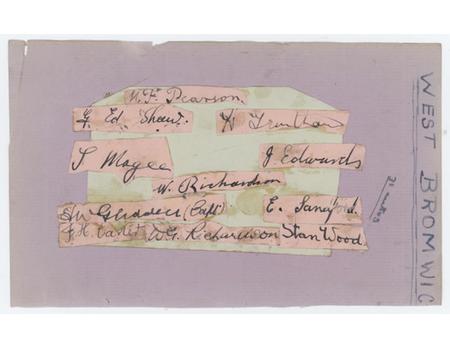 H. F. Pearson.
G. Ed Shaw. H Trentham
T Magee J Edwards
W. Richardson
H W Glidden (Capt) E. Sandford.
J. H. Carter W.G. Richardson Stan Wood.
WEST BROMWIC